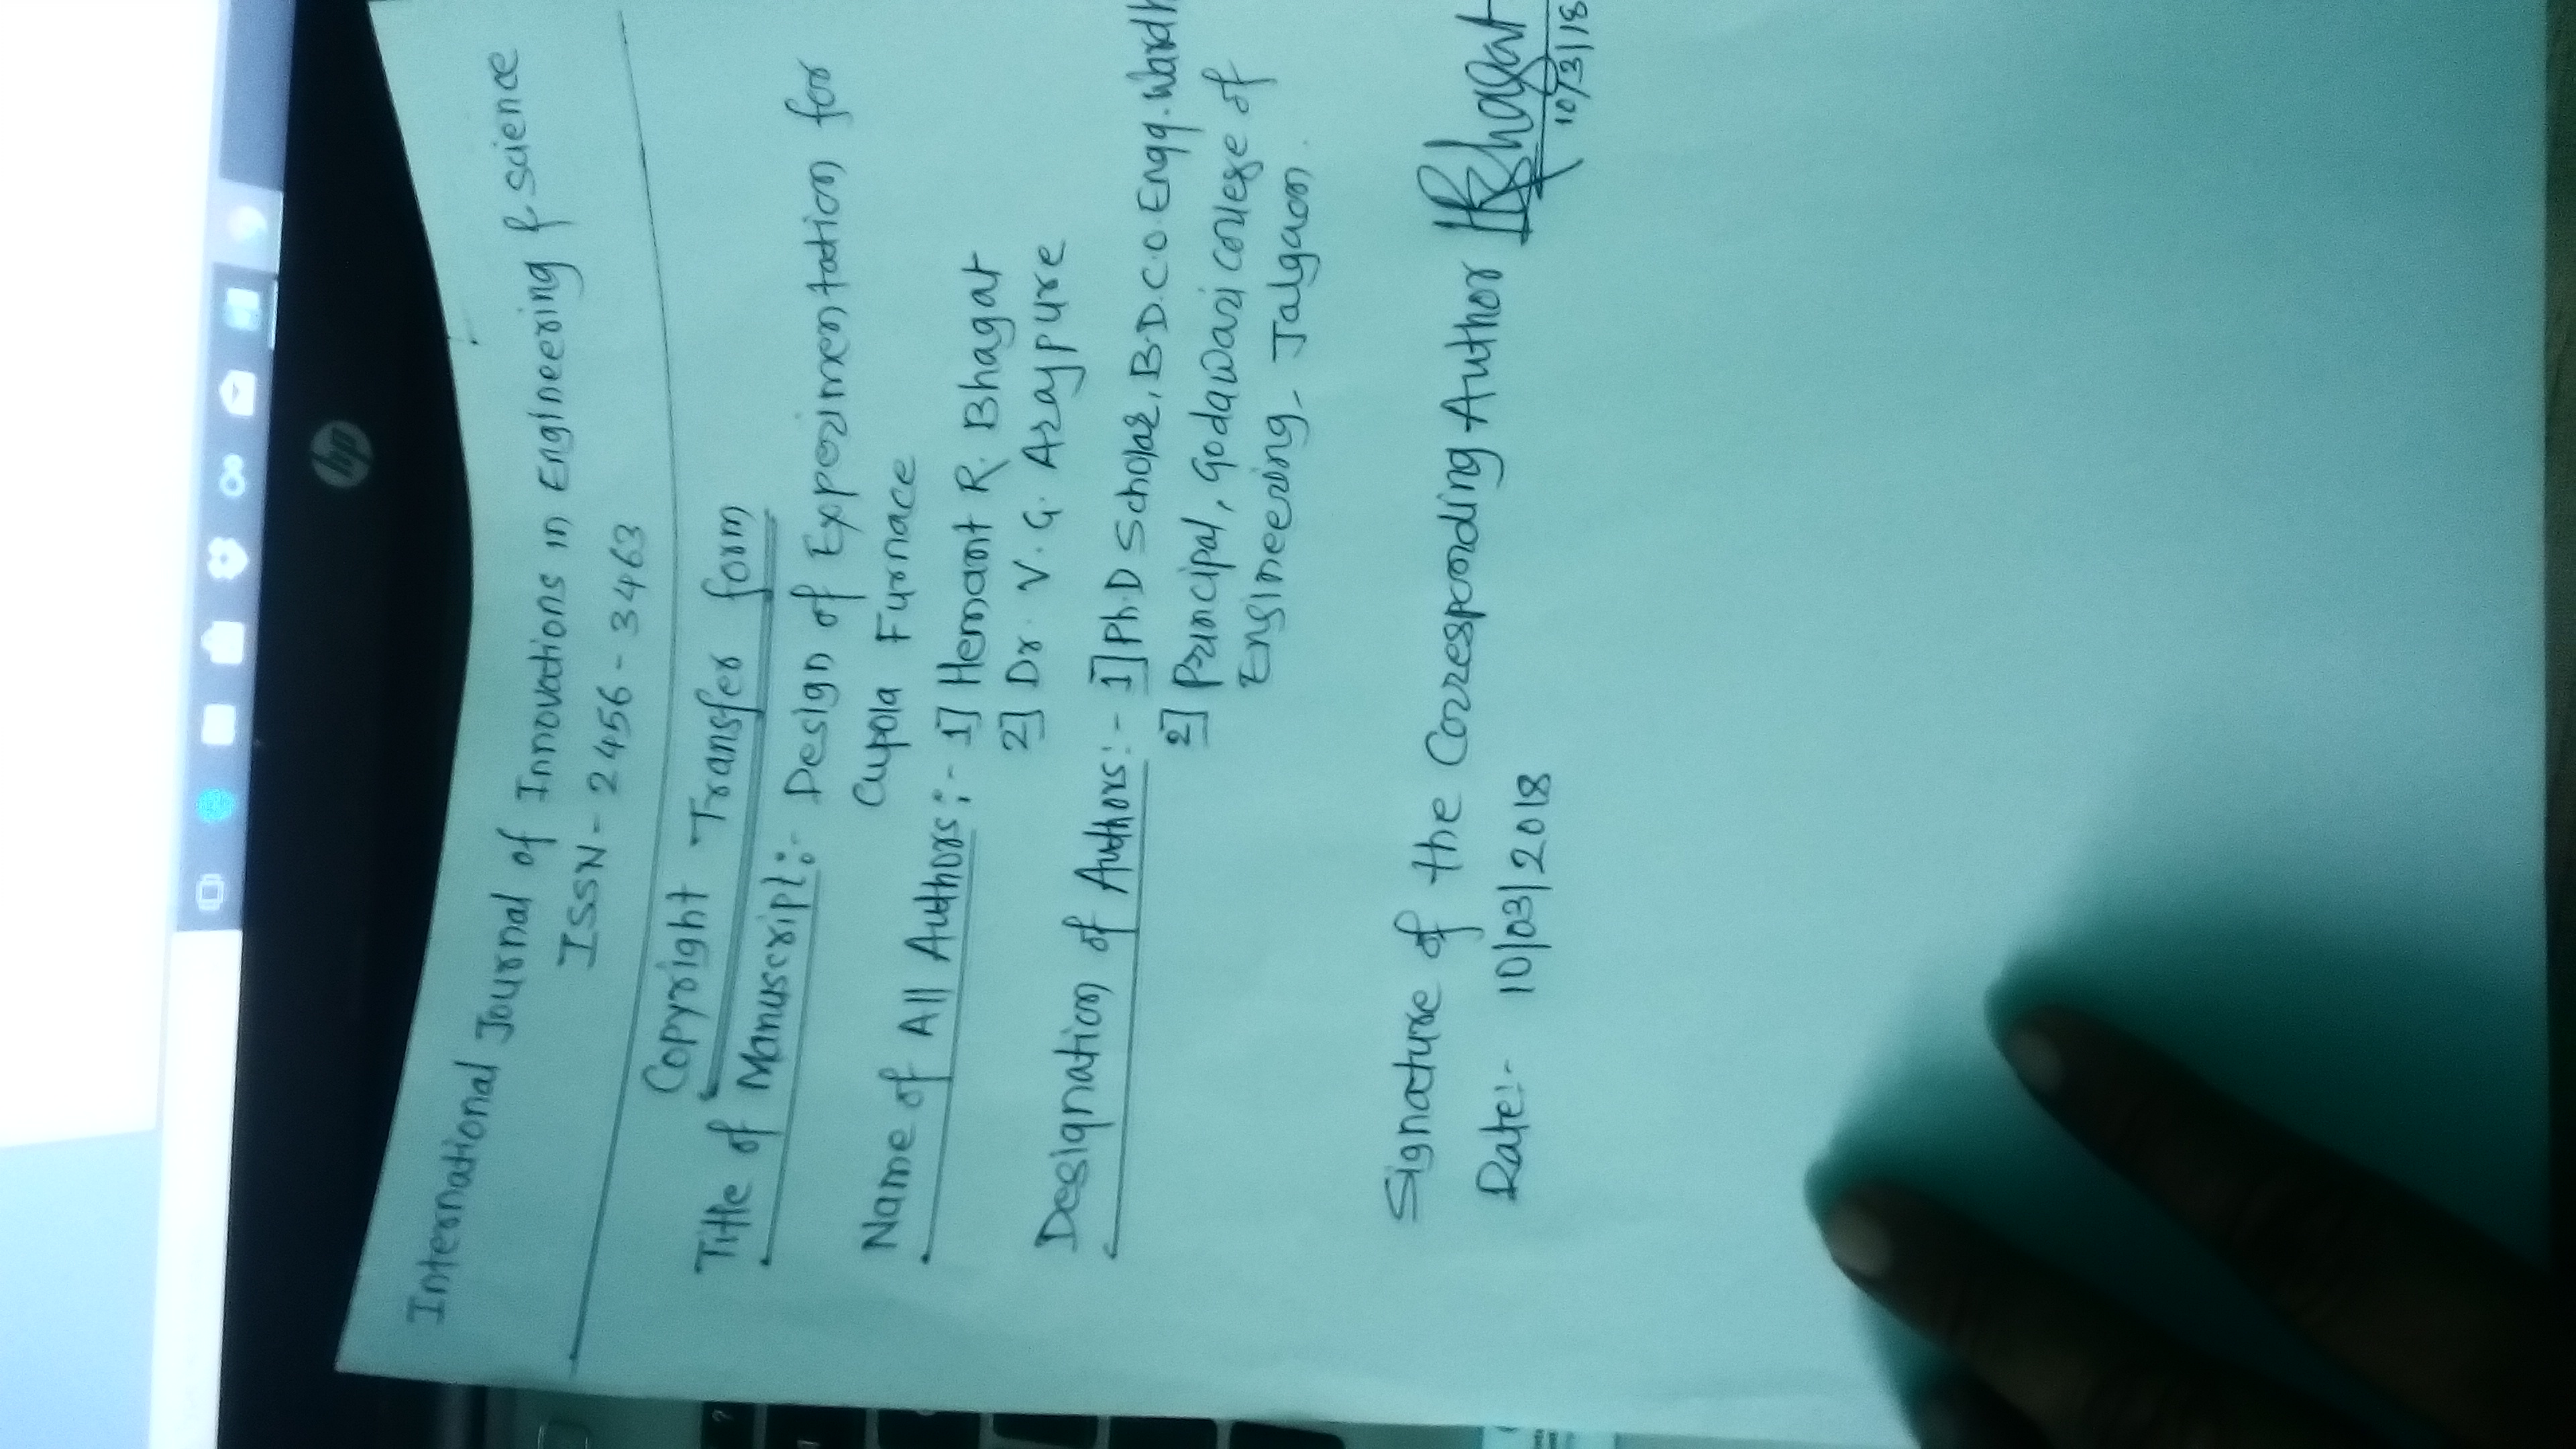 International Journal of Innovations in Engineering & science
ISSN - 2456 - 3463
Copyright Transfer form
Title of Manuscript :- Design of Experimentation for
Cupola Furnace
Name of All Authors :- 1] Hemant R. Bhagat
2] Dr. V. G. Arajpure
Designation of Authors :- 1] Ph.D Scholar, B.D.C.O.Engg. Wardh
2] Principal, Godawari college of
Engineering - Jalgaon.
Signature of the Corresponding Author HRBhagat
10/3/18
Date:- 10/03/2018
hp